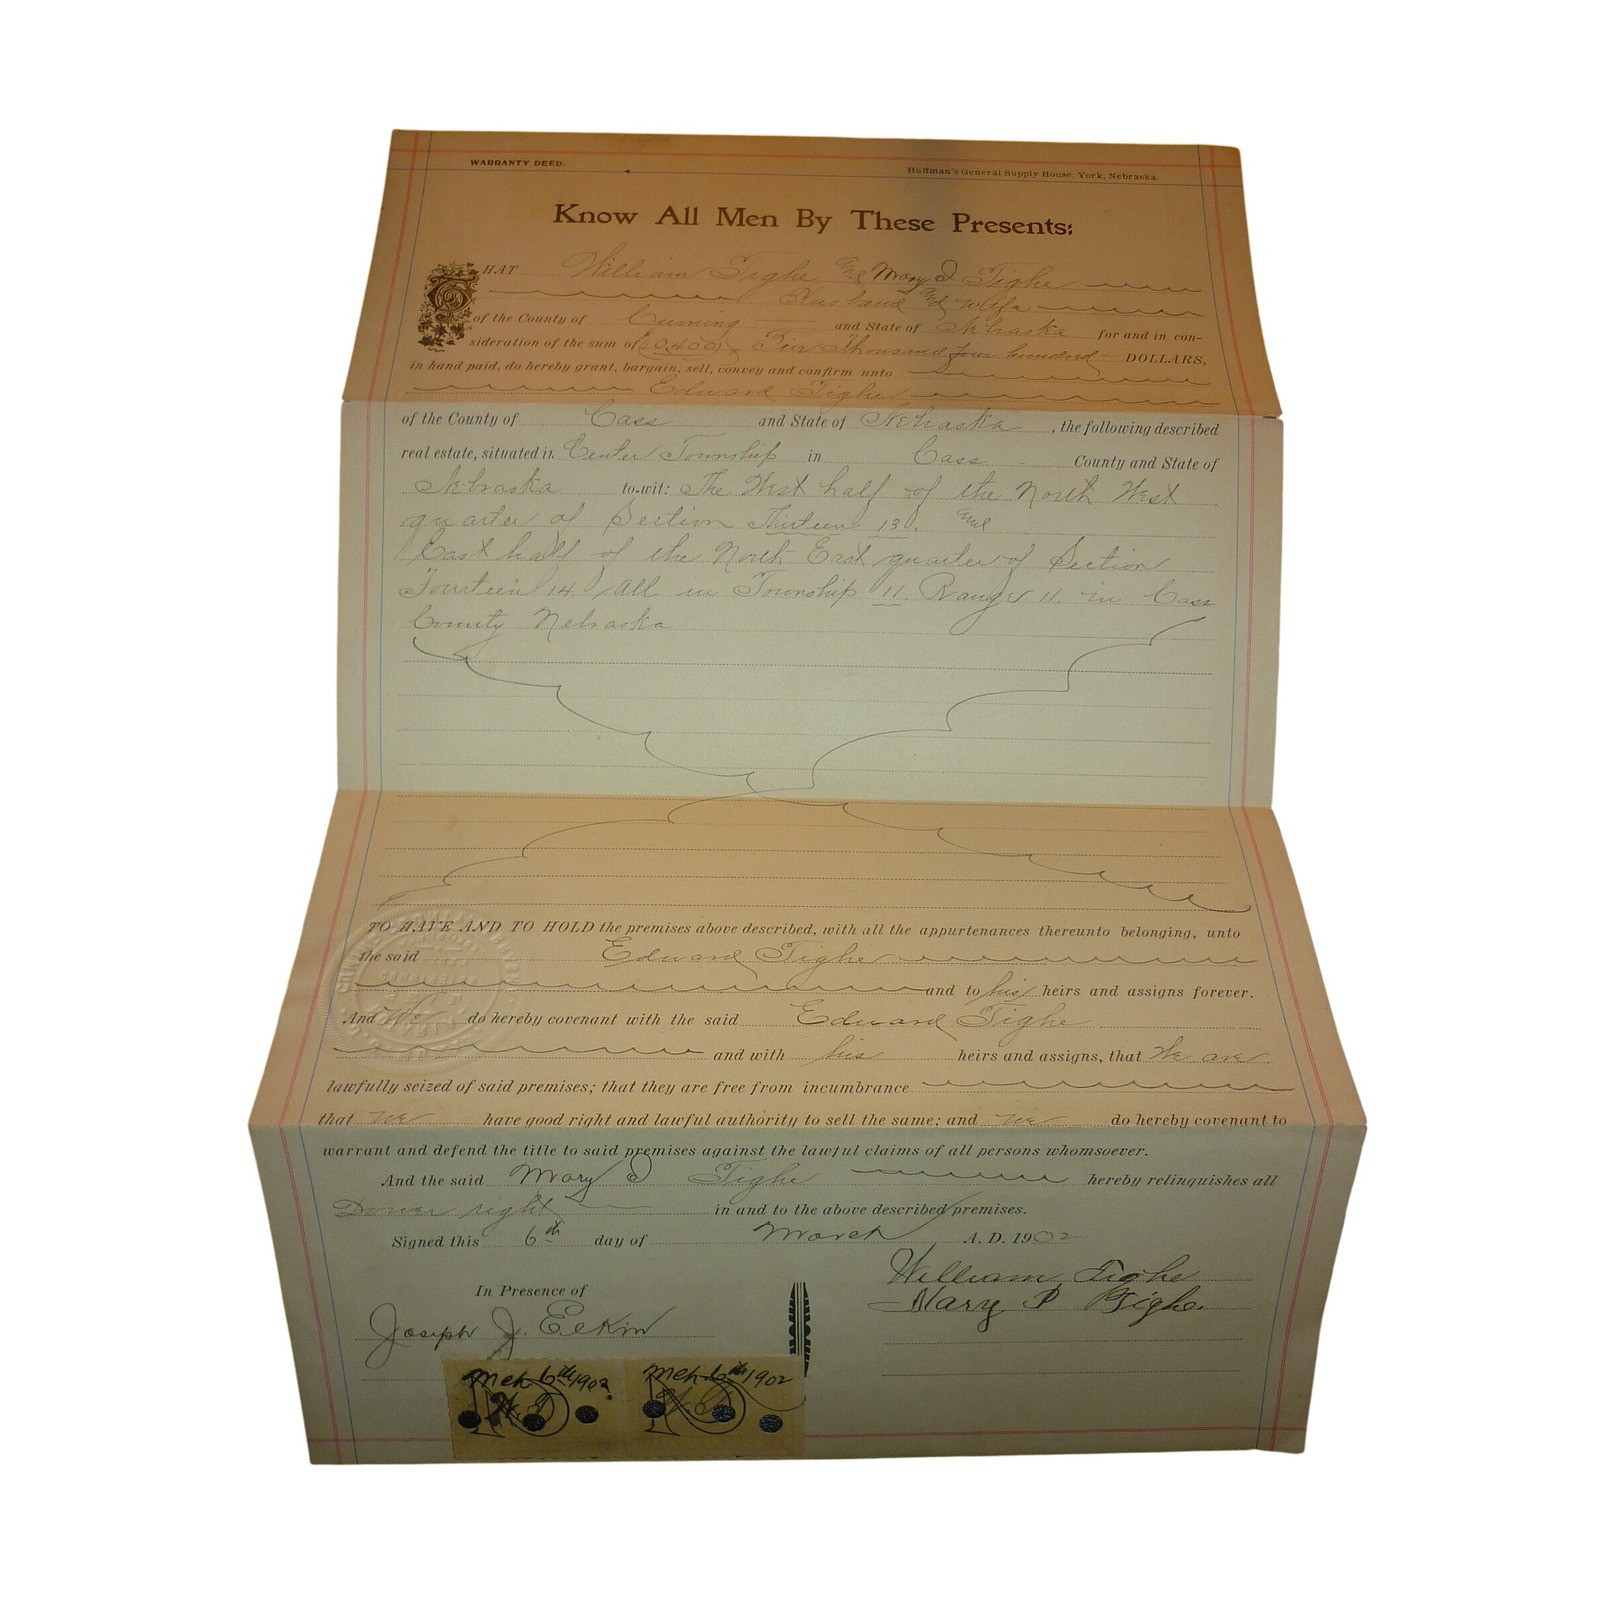 WARRANTY DEED.
Huffman's General Supply House, York, Nebraska.
Know All Men By These Presents:
THAT William Tighe and Mary D Tighe
Husband and Wife
of the County of Cuming and State of Nebraska for and in con-
sideration of the sum of Thousand four hundred DOLLARS,
in hand paid, do hereby grant, bargain, sell, convey and confirm unto
Edward Tighe
of the County of Cass and State of Nebraska , the following described
real estate, situated in Center Township in Cass County and State of
Nebraska to-wit: The West half of the North West
quarter of Section Thirteen 13. and
East half of the North East quarter of Section
Fourteen 14. All in Township 11. Range 11. in Cass
County Nebraska
TO HAVE AND TO HOLD the premises above described, with all the appurtenances thereunto belonging, unto
the said Edward Tighe
and to his heirs and assigns forever.
And We do hereby covenant with the said Edward Tighe
and with his heirs and assigns, that We are
lawfully seized of said premises; that they are free from incumbrance
that we have good right and lawful authority to sell the same; and we do hereby covenant to
warrant and defend the title to said premises against the lawful claims of all persons whomsoever.
And the said Mary D Tighe hereby relinquishes all
Dower right in and to the above described premises.
Signed this 6th day of March A. D. 1902
William Tighe
In Presence of
Mary D Tighe.
Joseph J. Elkin
Mch 6th 1902 Mch. 6th 1902
W.T W.T